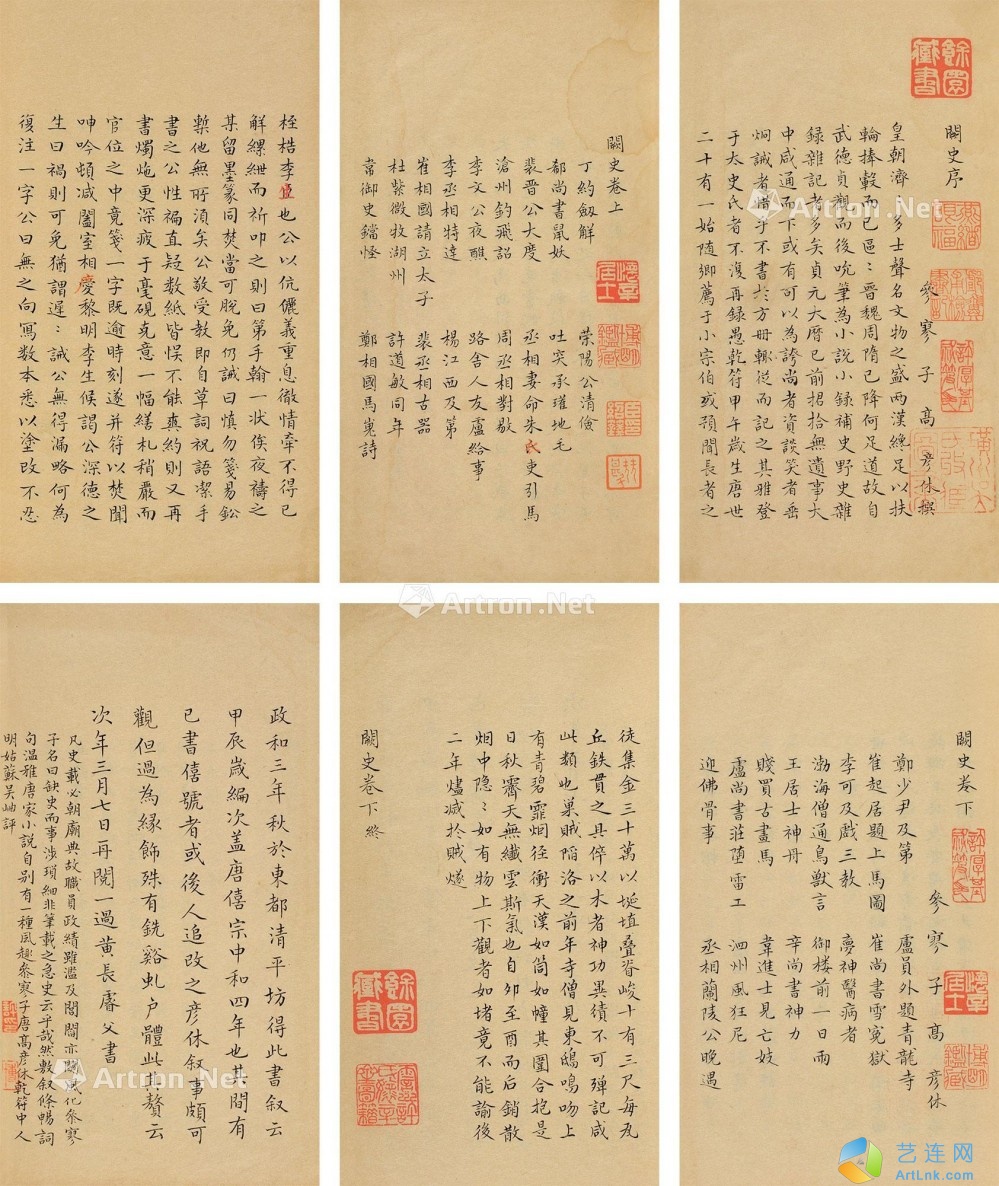 餘園藏書
闕史序
參寥子高彥休撰
皇朝濟〻多士聲名文物之盛兩漢纔足以扶
輪捧轂而已區〻晉魏周隋已降何足道故自
武德貞觀而後吮筆為小說小錄補史野史雜
錄雜記者多矣貞元大曆已前捃拾無遺事大
中咸通而下或有可以為誇尚者資談笑者垂
炯誡者惜乎不書於方冊輒從而記之其雅登
于太史氏者不復再録愚乾符甲午歲生唐世
二十有一始隨鄉薦于小宗伯或預聞長者之
闕史卷上
丁約劒解　滎陽公清儉
郗尚書鼠妖　吐突承璀地毛
裴晉公大度　丞相妻命朱衣吏引馬
滄州釣飛詔　周丞相對敭
李文公夜醮　路舍人友盧給事
李丞相特達　楊江西及第
崔相國請立太子　裴丞相古器
杜紫微牧湖州　許道敏同年
韋御史鐺怪　鄭相國馬嵬詩
桎梏李生也公以伉儷義重息微情牽不得已
解縲紲而祈叩之則曰第手翰一狀俟夜禱之
某留墨篆同焚當可脫免仍誡曰慎勿箋易鈆
槧他無所湏矣公敬受教即自草詞祝語潔手
書之公性褊直疑數紙皆悞不能爽約則又再
書燭灺更深疲于毫硯克意一幅繕札稍嚴而
官位之中竟箋一字既逾時刻遂并符以焚聞
呻吟頓減闔室相慶黎明李生候謁公深德之
生曰禍則可免猶謂遲〻誡公無得漏略何為
復注一字公曰無之向寫數本悉以塗改不忍
闕史卷下
參寥子高彥休
鄭少尹及第　盧員外題青龍寺
崔起居題上馬圖　崔尚書雪冤獄
李可及戲三教　夢神醫病者
渤海僧通鳥獸言　御樓前一日雨
王居士神丹　辛尚書神力
賤買古畫馬　韋進士見亡妓
盧尚書莊墮雷工　泗州風狂尼
迎佛骨事　丞相蘭陵公晚遇
徒集金三十萬以埏埴叠脊峻十有三尺每瓦
丘鉄貫之具倅以木者神功異績不可殫記咸
此類也巢賊陷洛之前年寺僧見東鴟鳴吻上
有青碧霏烟往衝天漢如筒如幢其圍合抱是
日秋霽天無纖雲斯氣也自夘至酉而后銷散
烟中隱〻如有物上下觀者如堵竟不能諭後
二年燼滅扵賊燧
闕史卷下終
餘園藏書
政和三年秋於東都清平坊得此書叙云
甲辰歲編次蓋唐僖宗中和四年也其間有
已書僖號者或後人追改之彥休叙事頗可
觀但過為緣飾殊有銑谿虬户體此其贅云
次年三月七日再閱一過黃長睿父書
凡史載必朝廟典故職員政績雖濫及閭閻亦關風化參寥
子名曰缺史而事涉瑣細非筆載之急史云乎哉然敷叙條暢詞
句温雅唐家小說自别有一種風趣參寥子唐高彥休乾符中人
明姑蘇吴岫評
Artron.Net
Artron.Net
Artron.Net
Artron.Net
艺连网
ArtLnk.com